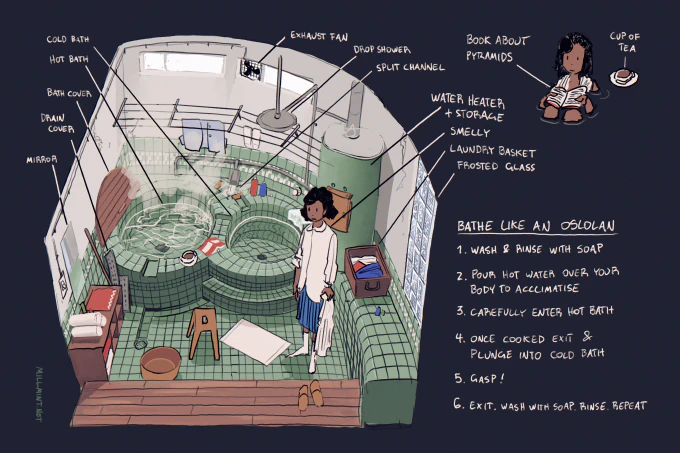 COLD BATH
HOT BATH
BATH COVER
DRAIN
COVER
MIRROR
EXHAUST FAN
DROP SHOWER
SPLIT CHANNEL
WATER HEATER
+ STORAGE
SMELLY
LAUNDRY BASKET
FROSTED GLASS
BOOK ABOUT
PYRAMIDS
CUP OF
TEA
BATHE LIKE AN OSLOLAN
1. WASH & RINSE WITH SOAP
2. POUR HOT WATER OVER YOUR
BODY TO ACCLIMATISE
3. CAREFULLY ENTER HOT BATH
4. ONCE COOKED EXIT &
PLUNGE INTO COLD BATH
5. GASP!
6. EXIT. WASH WITH SOAP. RINSE. REPEAT
MILLMINT.NET